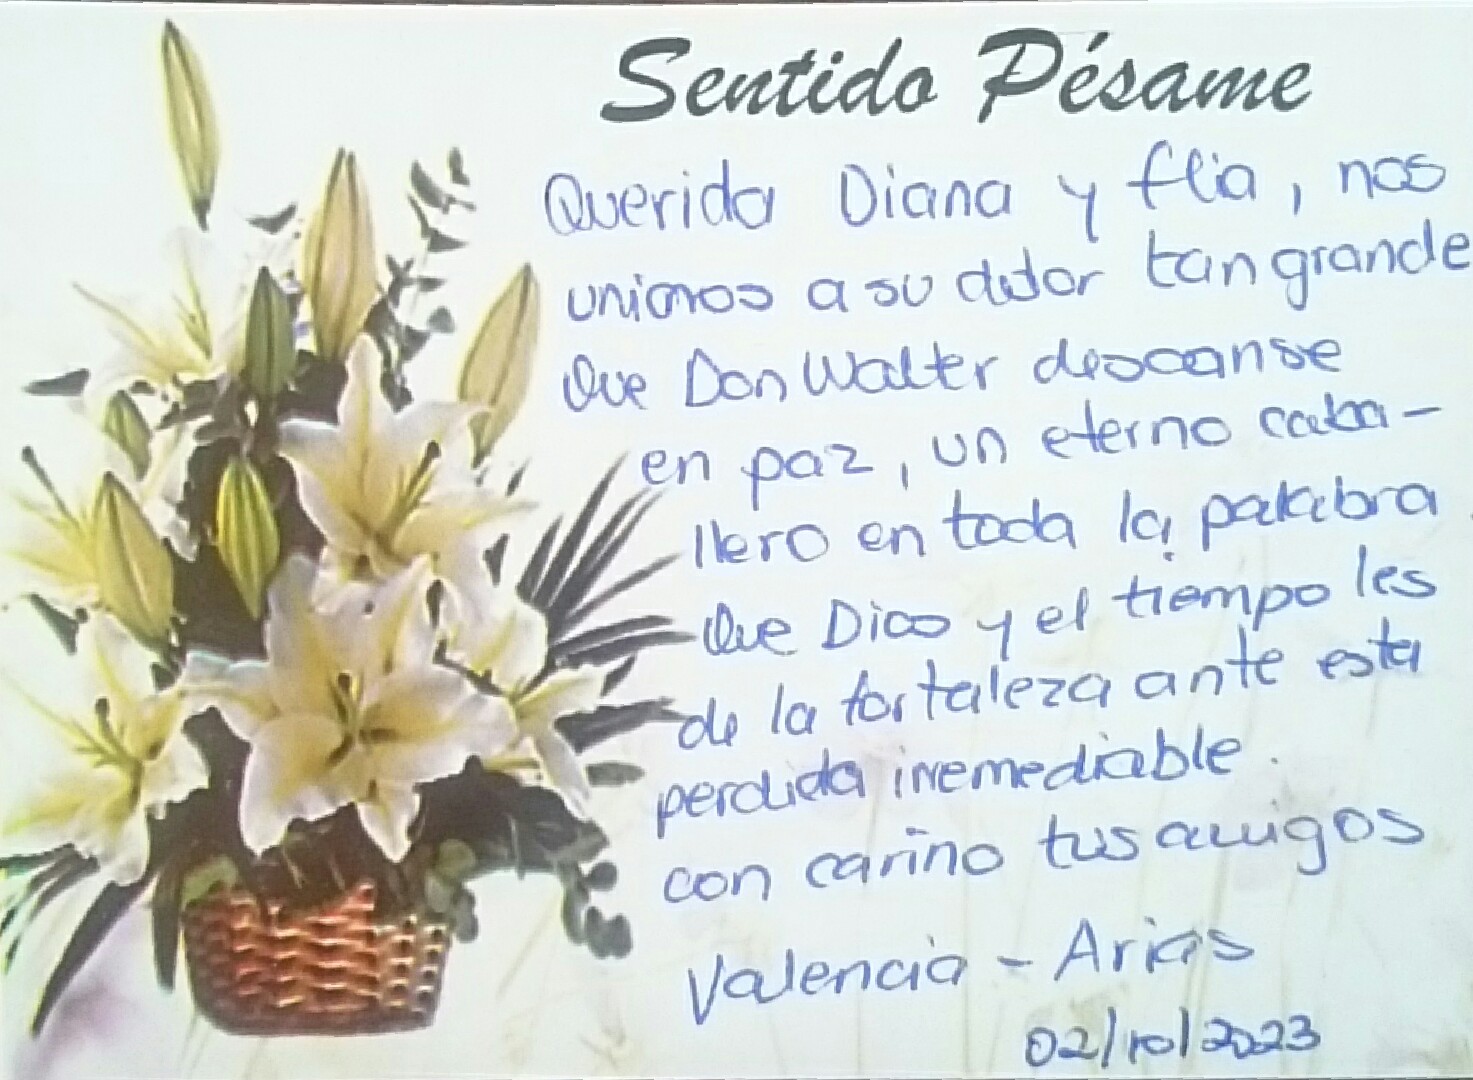 Sentido Pésame
Querida Diana y flia, nos
unimos a su dolor tan grande
Que Don Walter descanse
en paz, un eterno caba-
llero en toda la palabra.
Que Dios y el tiempo les
de la fortaleza ante esta
perdida irremediable.
con cariño tus amigos
Valencia - Arias
02/10/2023